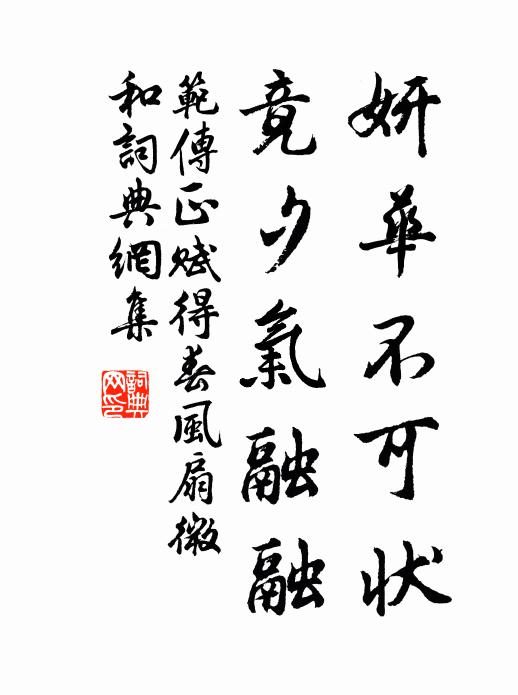 妍華不可狀
竟夕氣融融
範傳正賦得春風扇微
和詞典網集
詞典
网印